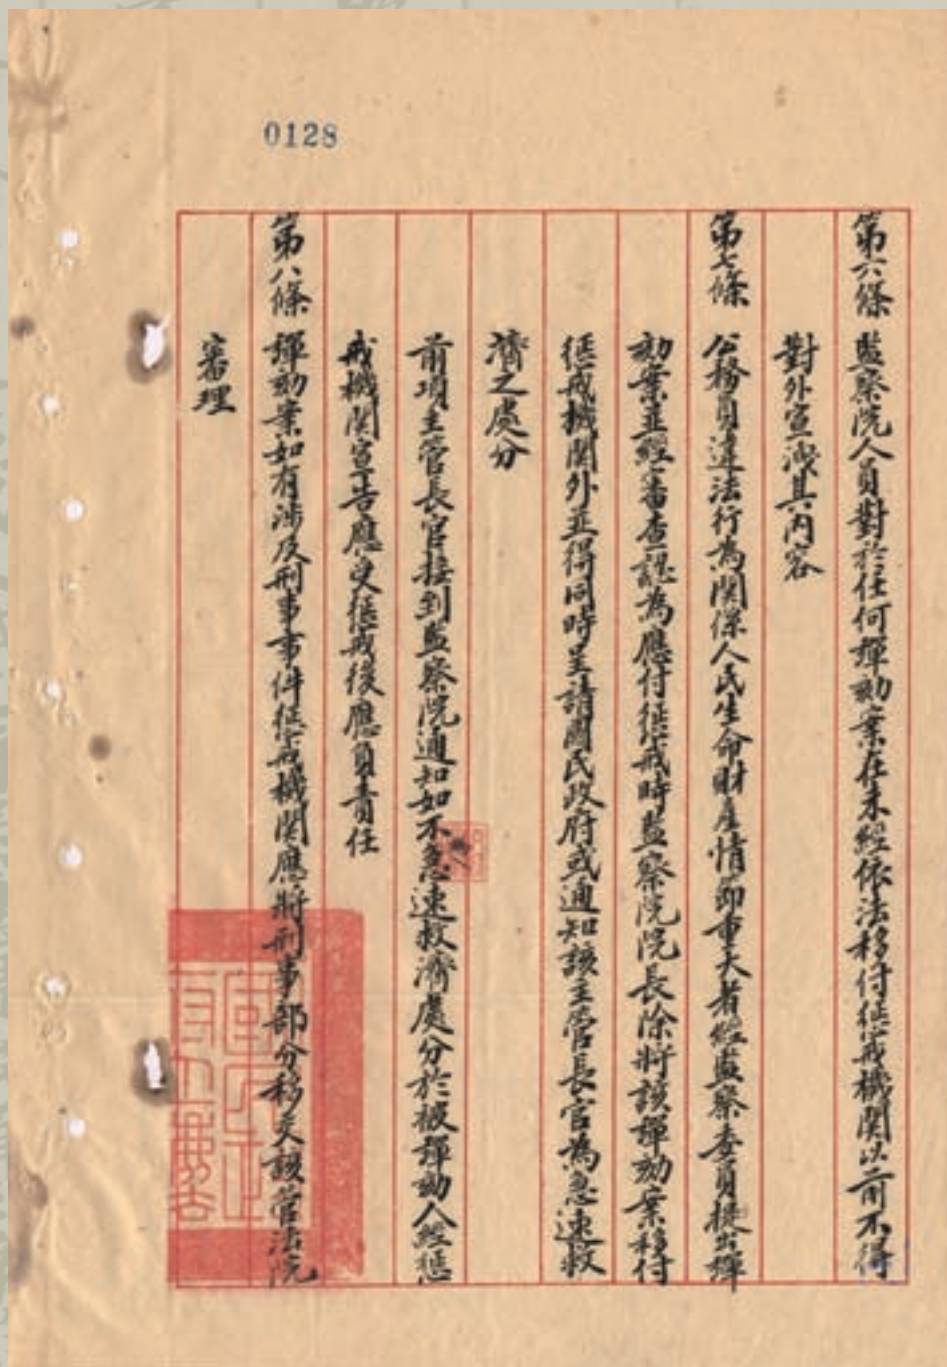 0128
第六條 監察院人員對於任何彈劾案在未經依法移付懲戒機關以前不得
對外宣洩其內容
第七條 公務員違法行為關係人民生命財產情節重大者經監察委員提出彈
劾案並經審查認為應付懲戒時監察院院長除將該彈劾案移付
懲戒機關外並得同時呈請國民政府或通知該主管長官為急速救
濟之處分
前項主管長官接到監察院通知如不急速救濟處分於被彈劾人經懲
戒機關宣告應受懲戒後應負責任
第八條 彈劾案如有涉及刑事事件懲戒機關應將刑事部分移交該管法院
審理